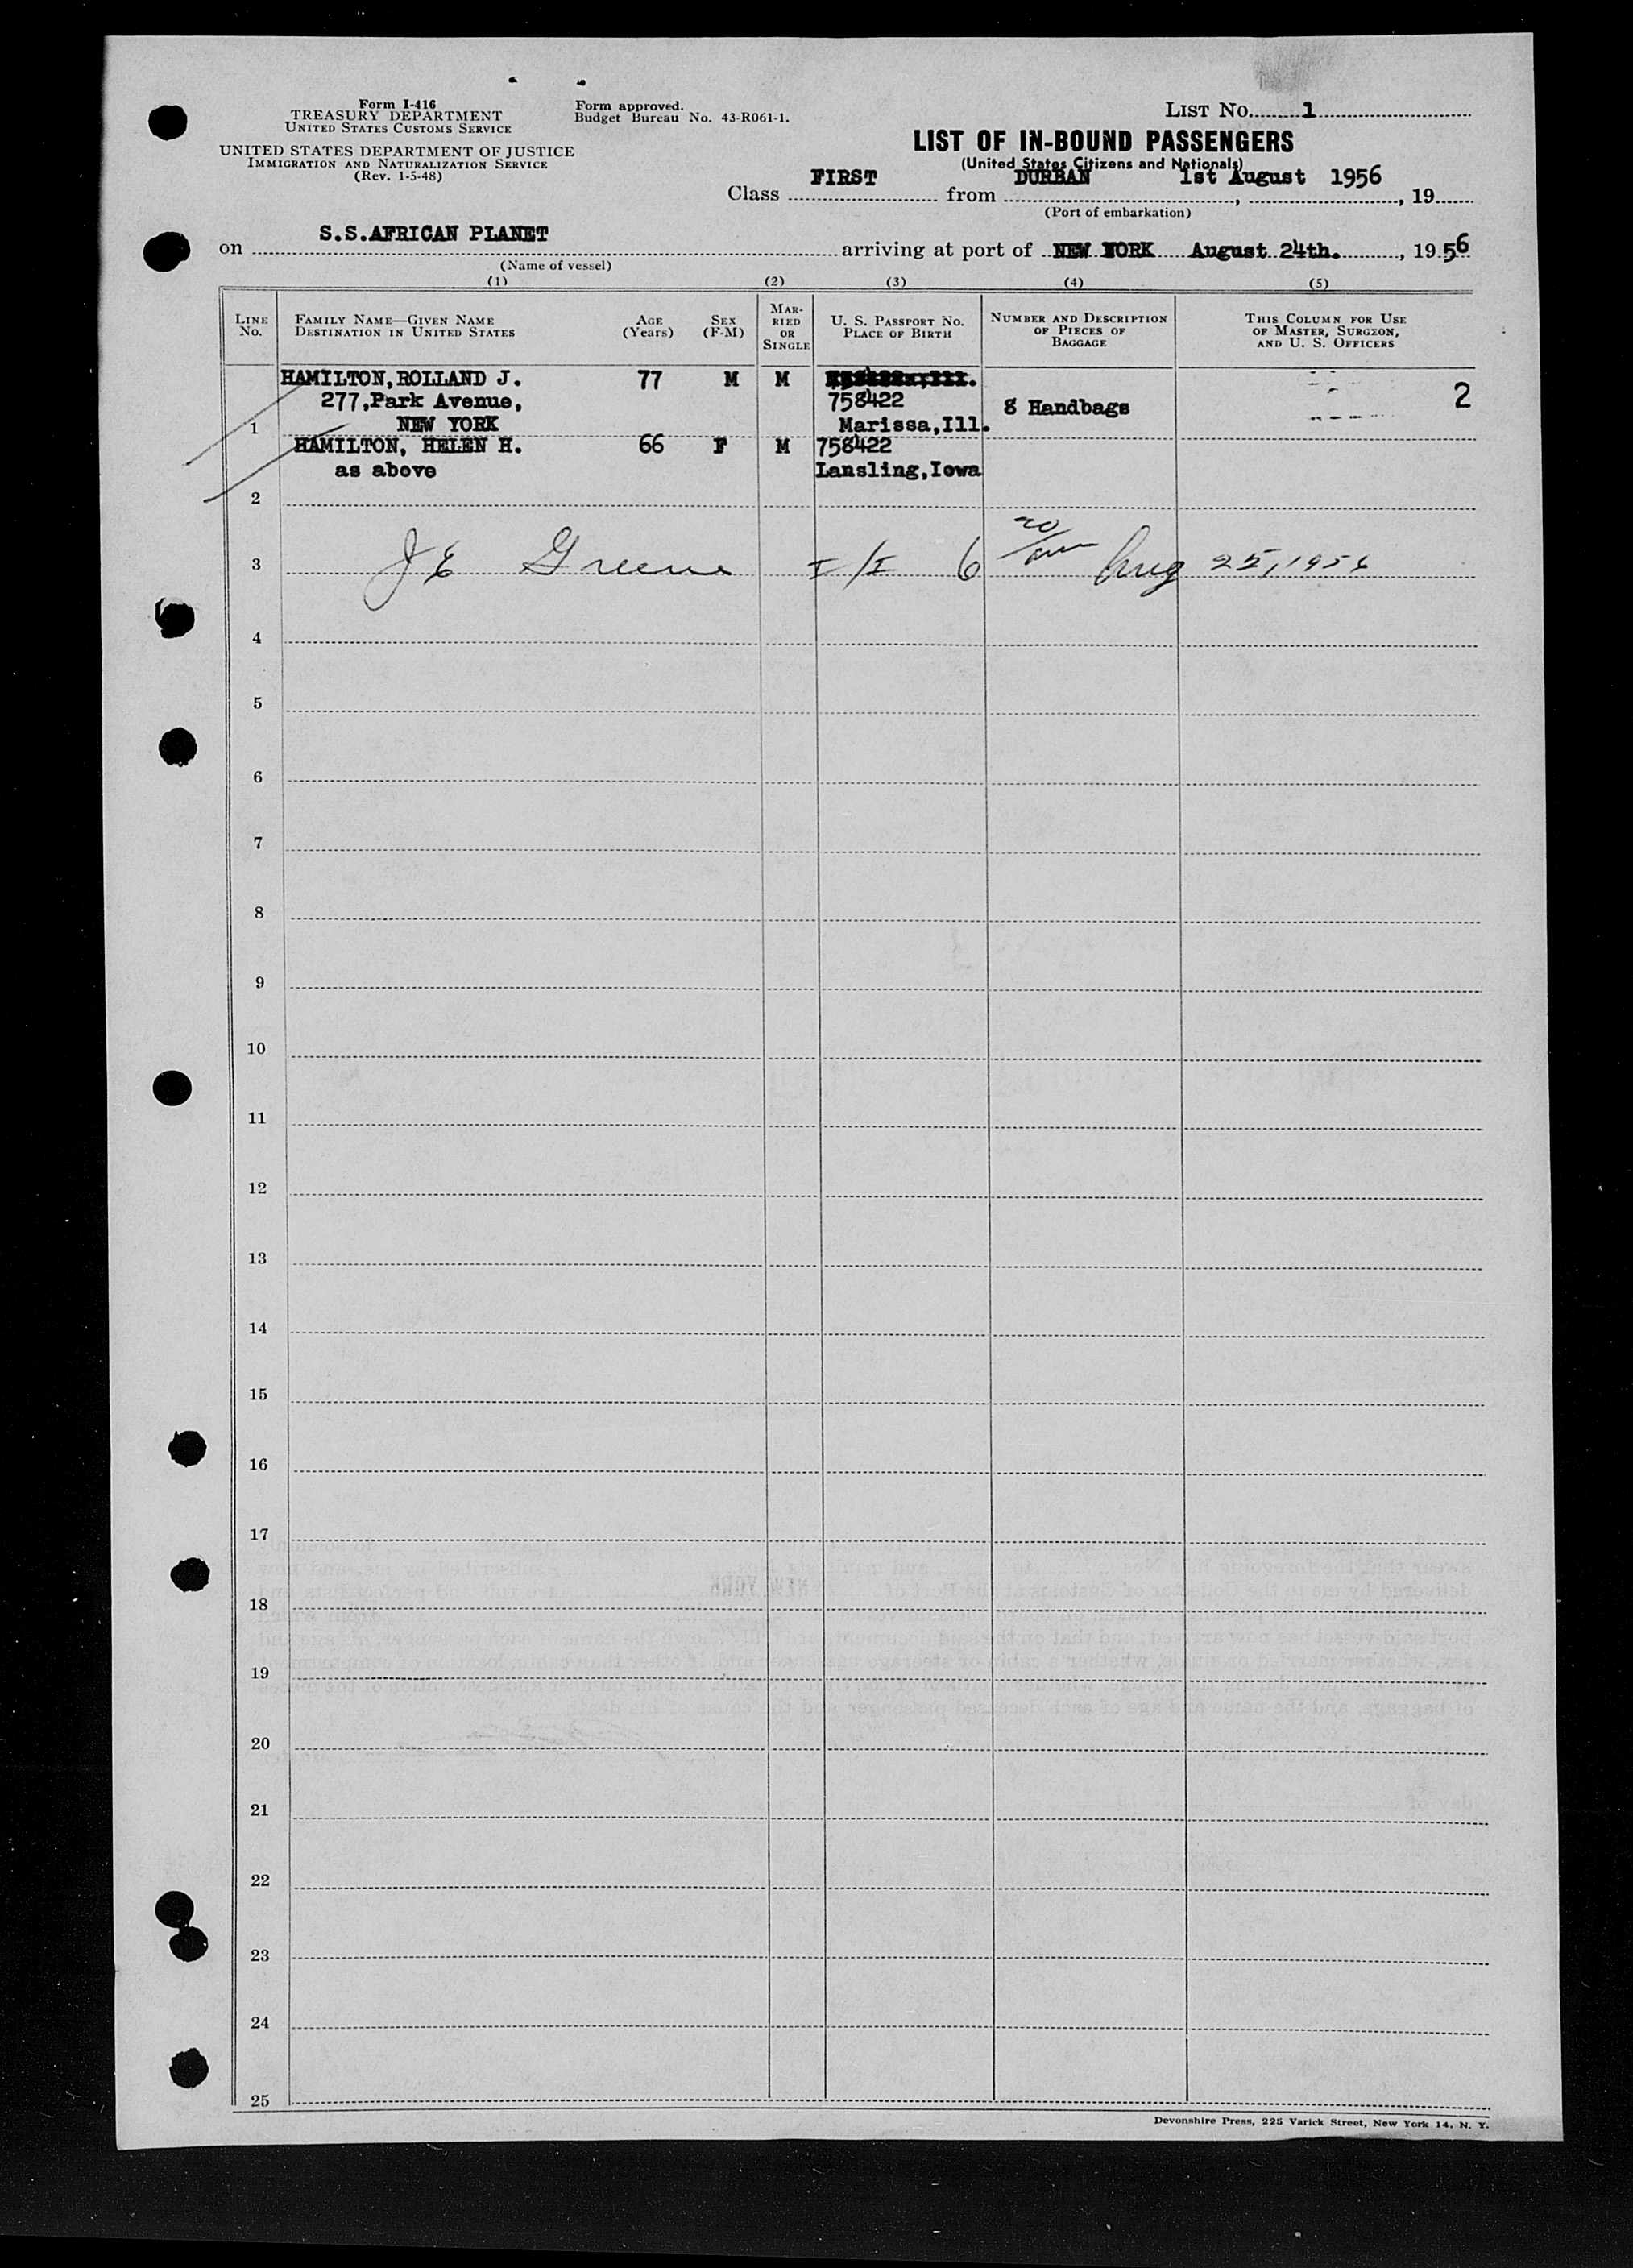 Form I-416
TREASURY DEPARTMENT
UNITED STATES CUSTOMS SERVICE
UNITED STATES DEPARTMENT OF JUSTICE
IMMIGRATION AND NATURALIZATION SERVICE
(Rev. 1-5-48)
Form approved.
Budget Bureau No. 43-R061-1.
LIST NO. 1
LIST OF IN-BOUND PASSENGERS
(United States Citizens and Nationals)
Class FIRST from DURBAN, 1st August 1956, 19
(Port of embarkation)
on S.S.AFRICAN PLANET arriving at port of NEW YORK August 24th., 1956
(Name of vessel)
(1) (2) (3) (4) (5)
LINE No.
FAMILY NAME—GIVEN NAME
DESTINATION IN UNITED STATES
AGE (Years)
SEX (F-M)
MARRIED OR SINGLE
U. S. PASSPORT NO.
PLACE OF BIRTH
NUMBER AND DESCRIPTION OF PIECES OF BAGGAGE
THIS COLUMN FOR USE OF MASTER, SURGEON, AND U. S. OFFICERS
HAMILTON,ROLLAND J. 77 M M
277,Park Avenue, 758422 8 Handbags 2
1 NEW YORK Marissa,Ill.
HAMILTON, HELEN H. 66 F M 758422
as above Lansling,Iowa
2
3 J E Greene I/I 6 Aug 25, 1956
4
5
6
7
8
9
10
11
12
13
14
15
16
17
18
19
20
21
22
23
24
25
Devonshire Press, 225 Varick Street, New York 14, N. Y.